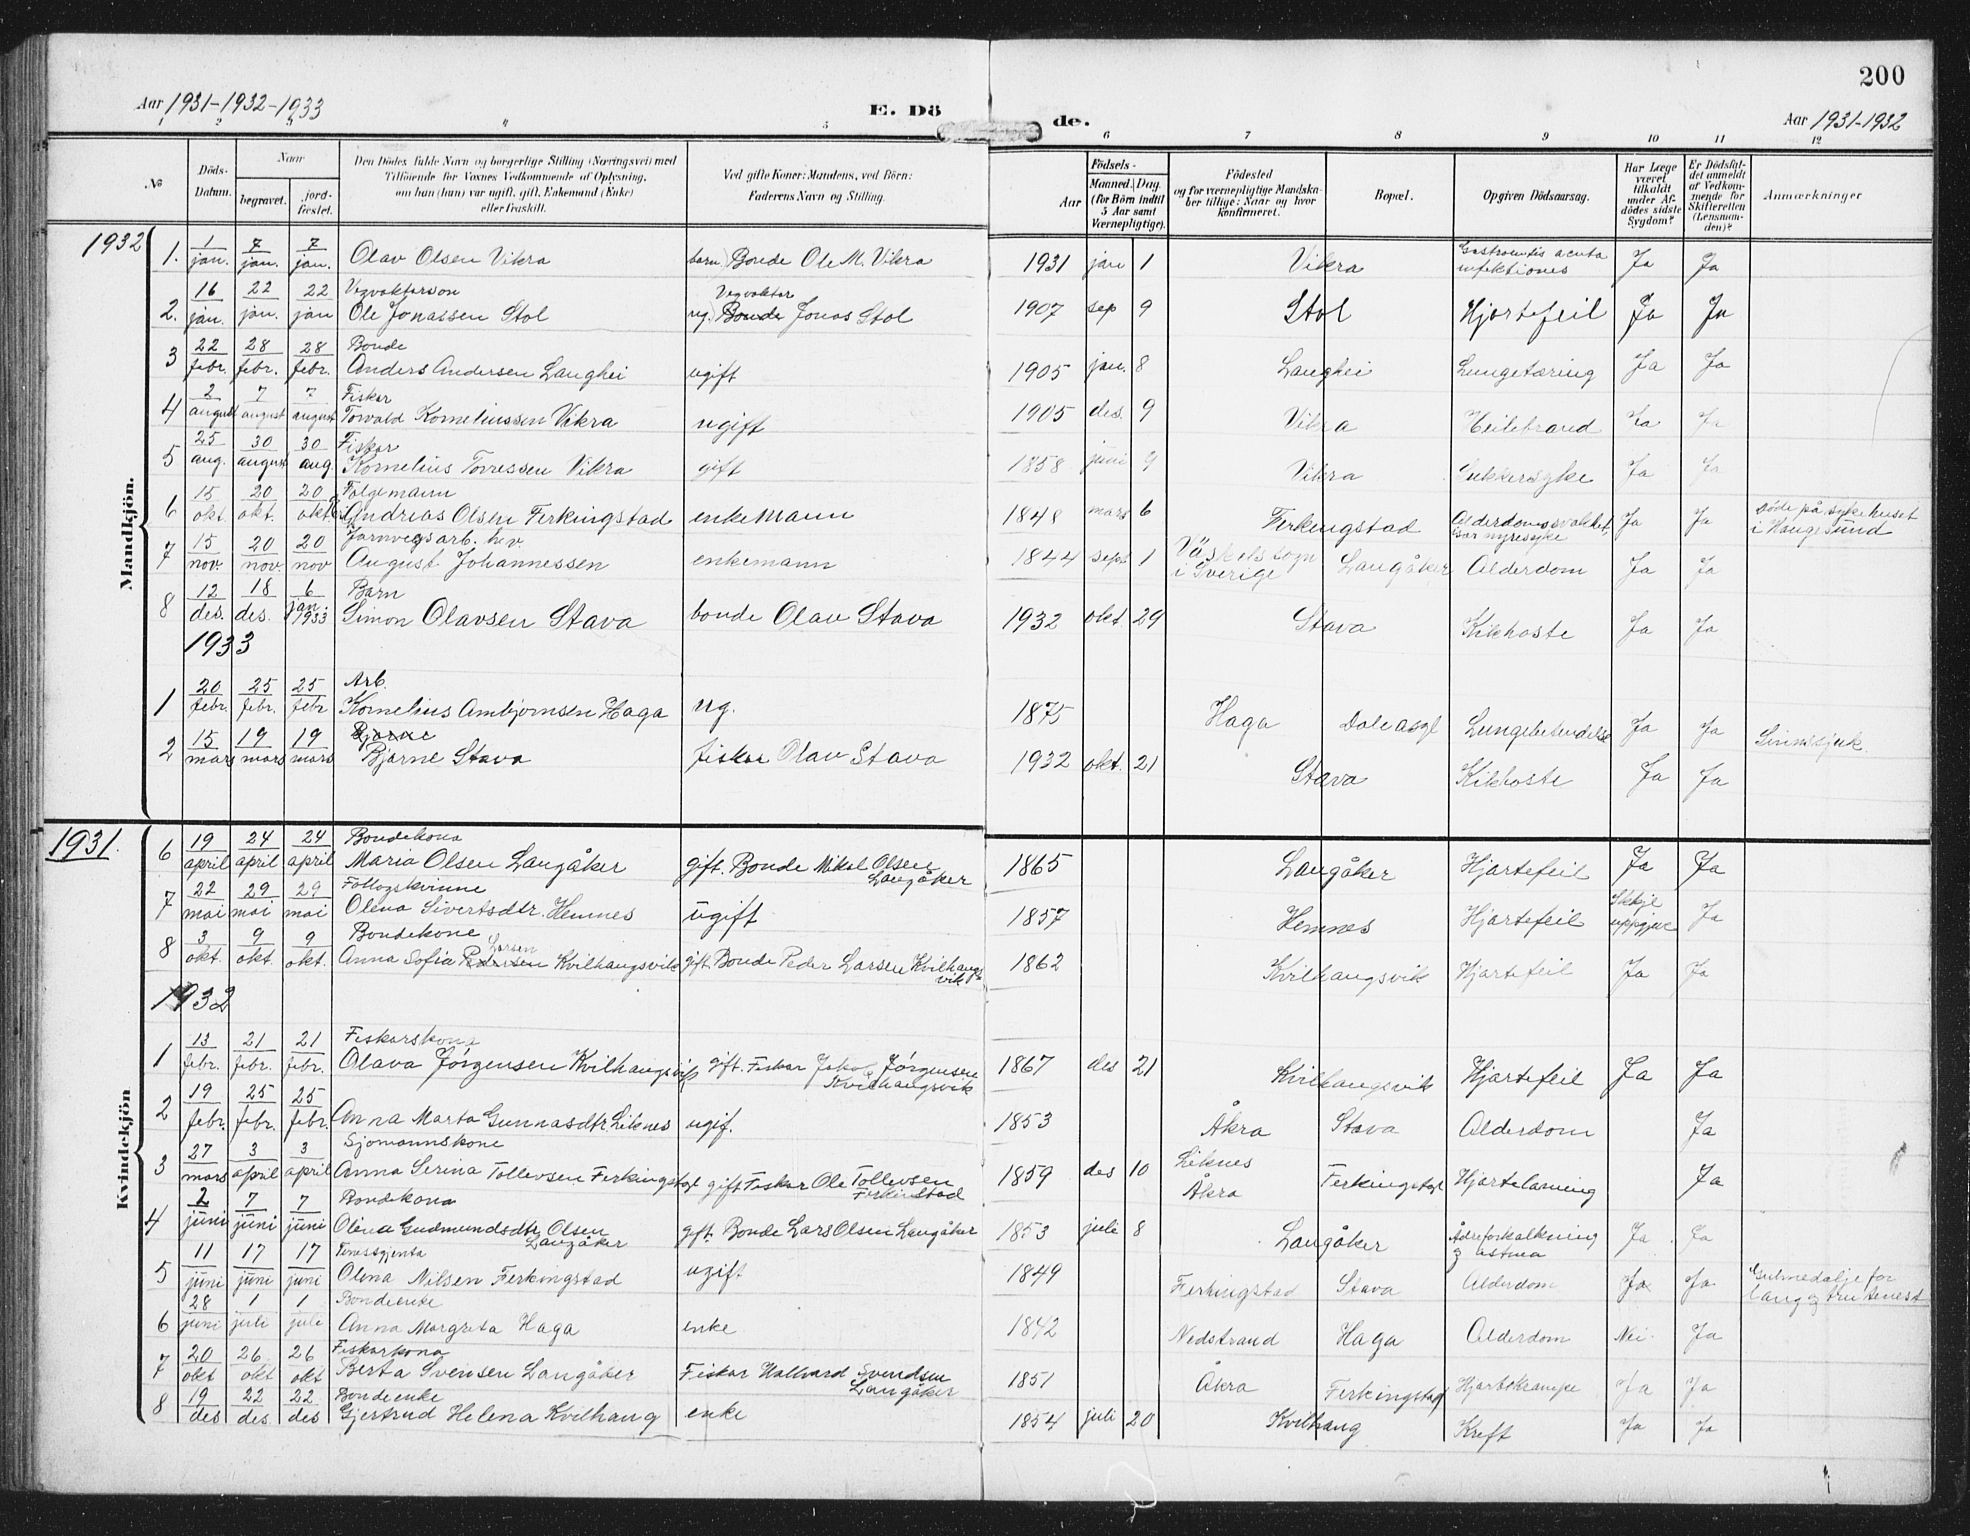 200
Aar 1931-1932-1933
E. Dö
de.
Aar 1931-1932
1 2 3 4 5 6 7 8 9 10 11 12
No
Döds-Datum.
Naar
begravet.
jord-fæstet.
Den Dödes fulde Navn og borgerlige Stilling (Næringsvei) med
Tilföiende for Voxnes Vedkommende af Oplysning,
om han (hun) var ugift, gift, Enkemand (Enke)
eller fraskilt.
Ved gifte Koner: Mandens, ved Börn:
Faderens Navn og Stilling.
Aar
Födsels-
Maaned. Dag.
(for Börn indtil
5 Aar samt
Værnepligtige).
Födested
og for værnepligtige Mandska-
ber tillige: Naar og hvor
konfirmeret.
Bopæl.
Opgiven Dödsaarsag.
Har Læge
været
tilkaldt
under Af-
dödes sidste
Sygdom?
Er Dödsfal-
det anmeldt
af Vedkom-
mende for
Skifteretten
(Lensman-
den)?
Anmærkninger
Mandkjön.
1932
1. 1 jan. 7 jan. 7 jan. Olav Olsen Vikra barn Bonde Ole M. Vikra 1931 jan 1 Vikra acuta infektiones Ja Ja
2. 16 jan. 22 jan. 22 jan Vegvaktarson Ole Jonassen Stol ug. Bonde Vegvaktar Jonas Stol 1907 sep 9 Stol Hjartefeil Ja Ja
3 22 febr. 28 febr. 28 febr. Bonde Anders Andersen Langhei ugift 1905 jan. 8 Langhei Lungetæring Ja Ja
4 2 august 7 august 7 august Fiskar Torvald Korneliussen Vikra ugift 1905 des. 9 Vikra Ja Ja
5 25 aug. 30 august 30 aug. Fiskar Kornelius Torressen Vikra gift 1858 juni 9 Vikra Sukkersyke Ja Ja
6 15 okt. 20 okt. 20 okt. Folgemann Andreas Olsen Ferkingstad enkemann 1848 mars 6 Ferkingstad nyresyke Ja Ja døde på sykehuset i Haugesund
7 15 nov. 20 nov. 20 nov Jarnvegsarb. hev. August Johannessen enkemann 1844 sept 1 i Sverige Langåker Alderdom Ja Ja
8 12 des. 18 des. 6 jan. 1933 Barn Simon Olavsen Stava bonde Olav Stava 1932 okt. 29 Stava Kikhoste Ja Ja
1933
1 20 febr. 25 febr. 25 febr Arb. Kornelius Ambjørnsen Haga ug. 1875 Haga Dale asyl Lungebetendelse Ja Ja Sinnssjuk
2 15 mars 19 mars 19 mars Bjarne Bjarne Stava fiskar Olav Stava 1932 okt. 21 Stava Kikhoste Ja Ja
Kvindekjön
1931.
6 19 april 24 april 24 april Bondekona Maria Olsen Langåker gift. Bonde Mikal Olsen Langåker 1865 Langåker Hjartefeil Ja Ja
7 22 mai 29 mai 29 mai Olena Sivertsdtr. Hemnes ugift 1857 Hemnes Hjartefeil Ikkje uppgjeve Ja
8 3 okt. 9 okt 9 okt. Bondekone Anna Sofia Pedersen Larsen Kvilhaugsvik gift. Bonde Peder Larsen Kvilhaugsvik 1862 Kvilhaugsvik Hjartefeil Ja Ja
1932
1 13 febr. 21 febr. 21 febr. Fiskarskona Olava Jørgensen Kvilhaugsvik gift. Fiskar Jakob Jørgensen Kvilhaugsvik 1867 des 21 Kvilhaugsvik Hjartefeil Ja Ja
2 19 febr. 25 febr. 25 febr. Anna Marta Gunnasdtr. Liknes ugif. 1853 Åkra Stava Alderdom Ja
3 27 mars 3 april 3 april Sjomannskone Anna Serina Tollevsen Ferkingstad gift Fiskar Ole Tollevsen Ferkinstad 1859 des 10 Liknes Åkra Ferkingstad Hjartelamming Ja
4 2 juni 7 juni 7 juni Bondekona Olena Gudmundsdtr Olsen Langåker gift. Bonde Lars Olsen Langåker 1853 juli 8 Langåker Åreforkalkning og astma Ja Ja
5 11 juni 17 juni 17 juni Tenestgjenta Olena Nilsen Ferkingstad ugift 1849 Ferkingstad Stava Alderdom Ja Ja Gulmedalje for lang og tru tenest
6 28 juni 1 juli 1 juli Bondeenke Anna Margreta Haga enke 1842 Nedstrand Haga Alderdom Nei. Ja
7 20 okt 26 okt 26 okt Fiskarkona Berta Svensen Langåker Fiskar Hallvard Svendsen Langåker 1851 Åkra Ferkingstad Hjartekrampe Ja Ja
8 19 des 22 des. 22 des Bondeenke Gjertrud Helena Kvilhaug enke 1854 juli 20 Kvilhaug Kreft Ja Ja